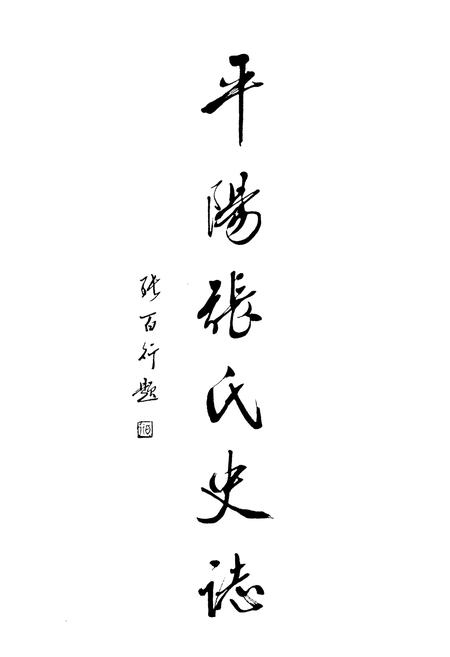 平陽張氏史誌
張百行題